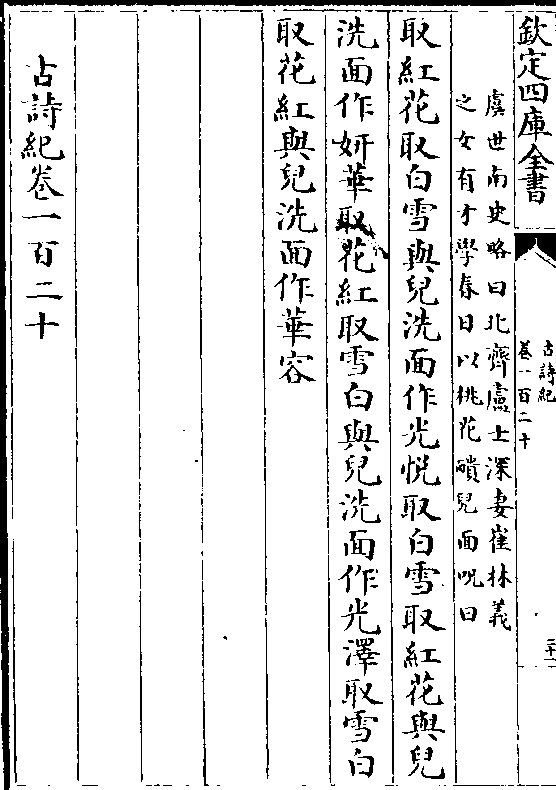 欽定四庫全書
古詩紀
卷一百二十
二十一
虞世南史略曰北齊盧士深妻崔林義
之女有才學春日以桃花靧兒面呪曰
取紅花取白雪與兒洗面作光悅取白雪取紅花與兒
洗面作妍華取花紅取雪白與兒洗面作光澤取雪白
取花紅與兒洗面作華容
古詩紀卷一百二十